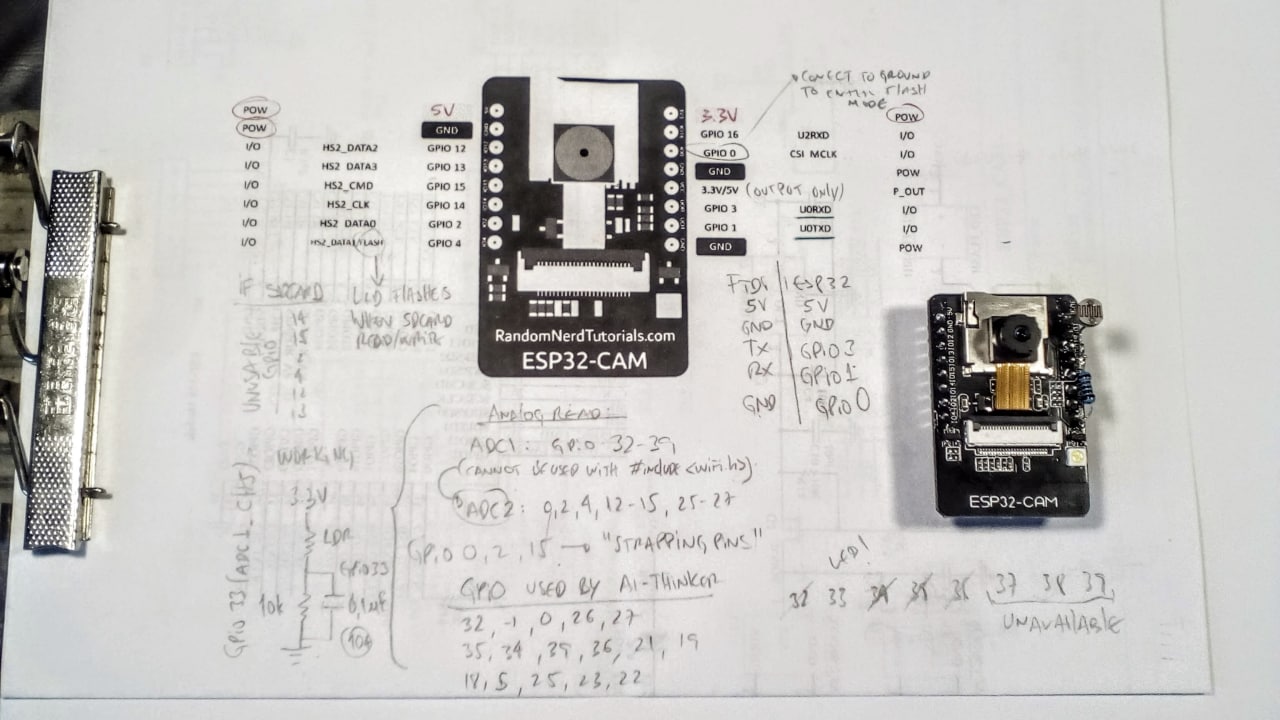 CONECT TO GROUND
TO ENTER FLASH
MODE
POW 5V 3.3V POW
POW GND GPIO 16 U2RXD I/O
I/O HS2_DATA2 GPIO 12 GPIO 0 CSI MCLK I/O
I/O HS2 DATA3 GPIO 13 GND POW
I/O HS2_CMD GPIO 15 3.3V/5V (OUTPUT ONLY) P_OUT
I/O HS2_CLK GPIO 14 GPIO 3 U0RXD I/O
I/O HS2 DATA0 GPIO 2 GPIO 1 U0TXD I/O
I/O HS2_DATA1/FLASH GPIO 4 GND POW
RandomNerdTutorials.com
ESP32-CAM
IF SDCARD
UNUSABLE
GPIO
14
15
2
4
12
13
LED FLASHES
WHEN SDCARD
READ/WRITE
FTDI ESP32
5V 5V
GND GND
TX GPIO3
RX GPIO1
GND GPIO0
ESP32-CAM
ANALOG READ:
ADC1: GPIO 32-39
(CANNOT BE USED WITH #include <wifi.h>)
ADC2: 0,2,4,12-15, 25-27
GPIO 0, 2, 15 → "STRAPPING PINS"
GPIO USED BY AI-THINKER
32, -1, 0, 26, 27
35, 34, 39, 36, 21, 19
18, 5, 25, 23, 22
GPIO 33 (ADC1_CH5)
WORKING
3.3V
LDR
GPIO33
10k
0,1uF
LED!
32 33 34 35 36 37 38 39
UNAVAILABLE